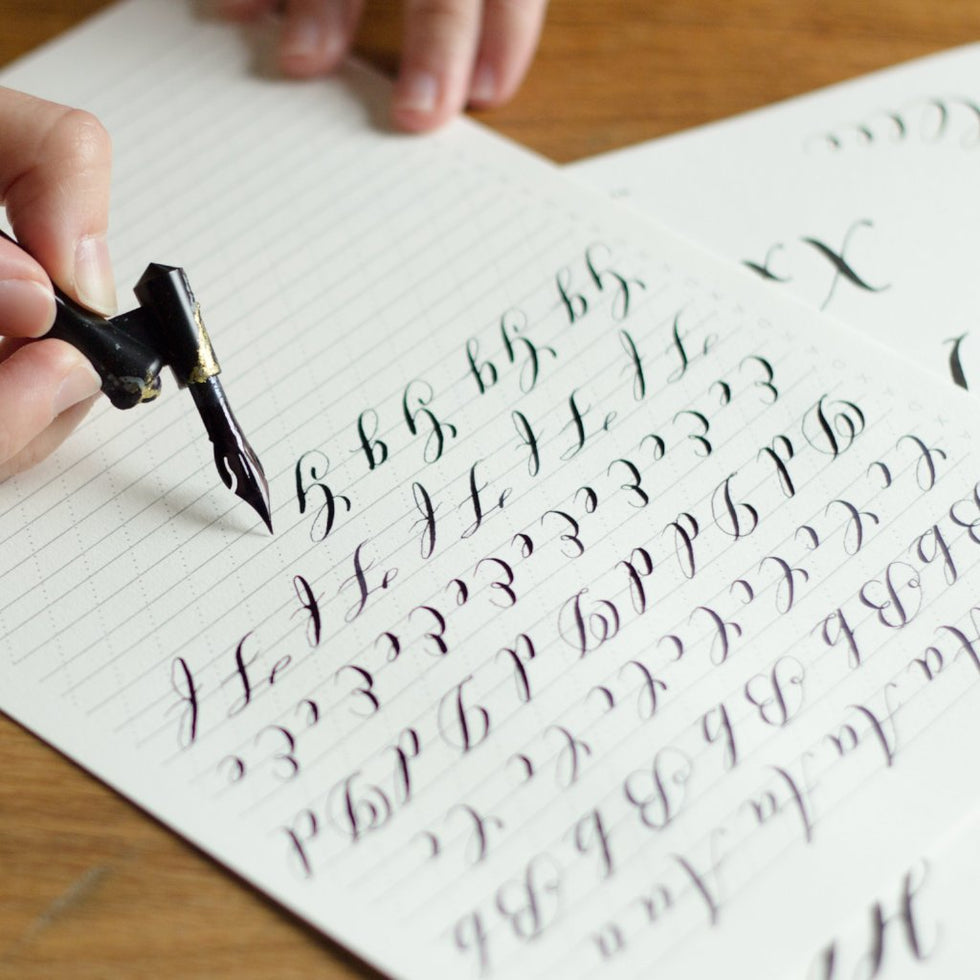 Aa Aa Aa Aa a
Bb Bb Bb Bb Bb
Cc Cc Cc Cc Cc Cc Cc
Dd Dd d Dd Dd Dd
Ee Ee Ee Ee Ee Ee Ee Ee
Ff Ff Ff Ff Ff
Gg Gg Gg G
H
X x